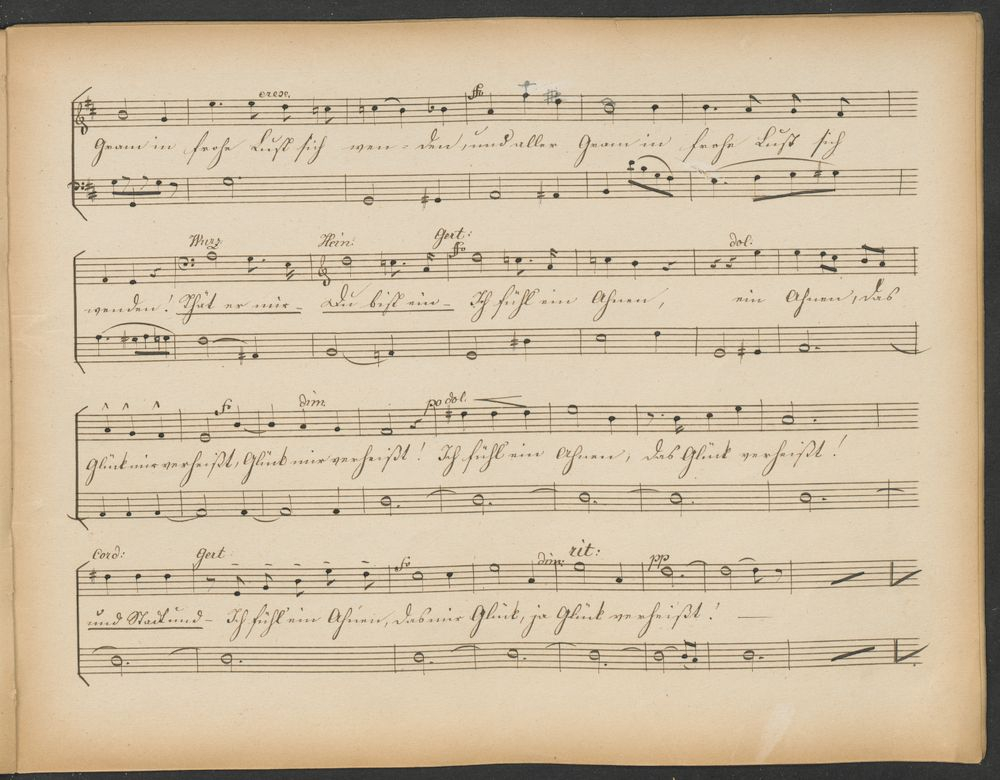 cresc. ffo
Gram in frohe Lust sich wen - den, und aller Gram in frohe Lust sich
Wurz. Hein: Gert: ffo dol:
wenden! Thät er mir - Du bist ein - Ich fühl ein Ahnen, ein Ahnen, das
fo dim. po dol.
Glück mir verheißt, Glück mir verheißt! Ich fühl ein Ahnen, das Glück verheißt!
Cord: Gert: fo dim: rit: pp
und Stock und - Ich fühl ein Ahnen, das mir Glück, ja Glück verheißt! -